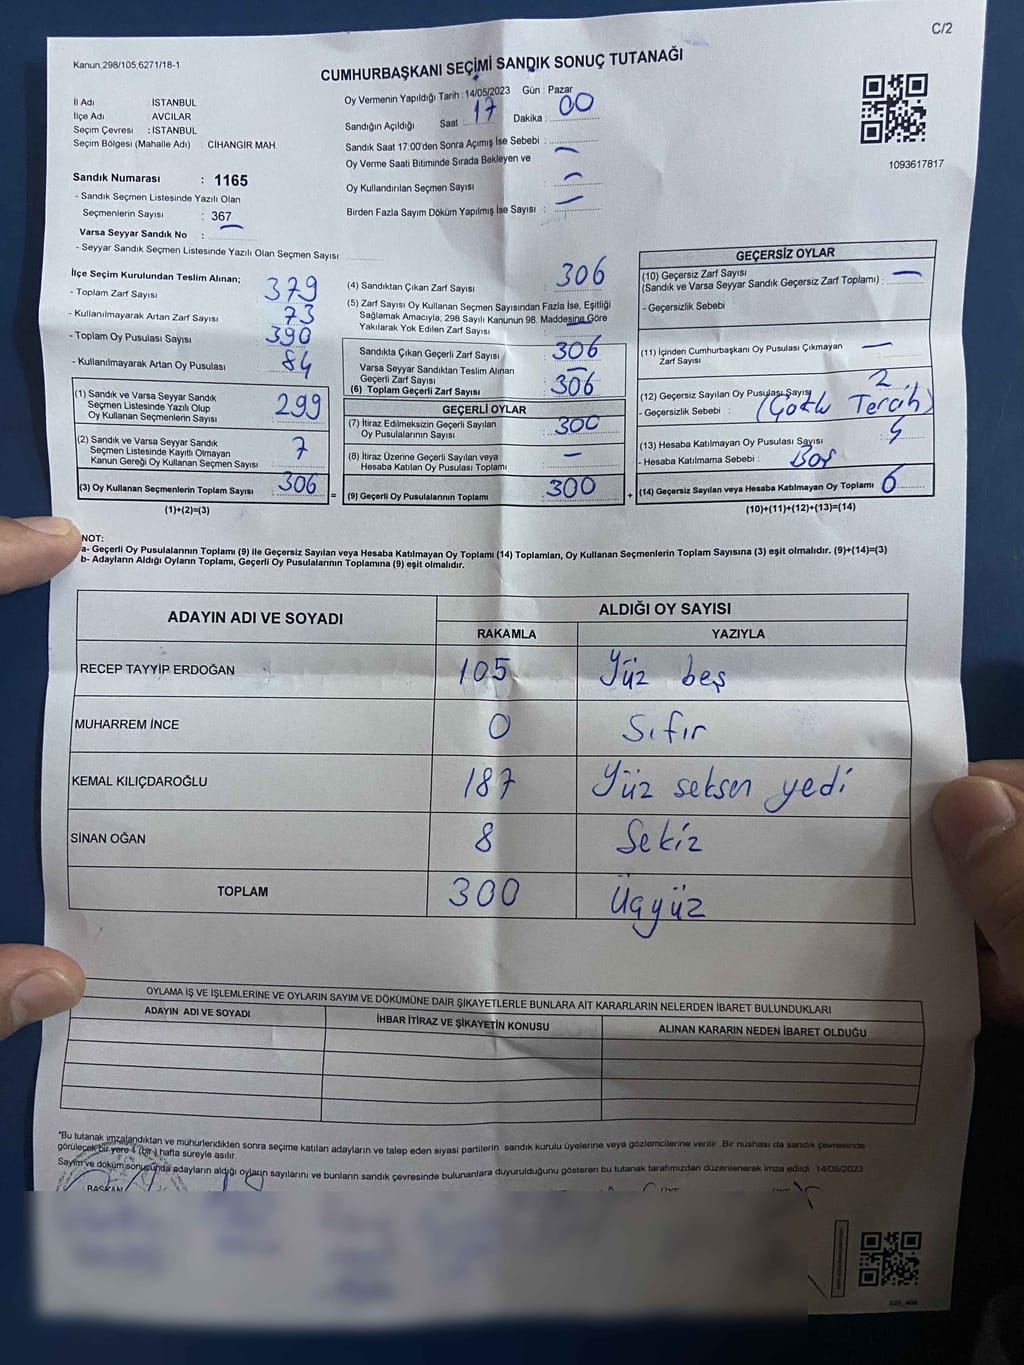 C/2
Kanun,298/105,6271/18-1
CUMHURBAŞKANI SEÇİMİ SANDIK SONUÇ TUTANAĞI
İl Adı İSTANBUL
İlçe Adı AVCILAR
Seçim Çevresi : İSTANBUL
Seçim Bölgesi (Mahalle Adı) : CİHANGİR MAH.
Oy Vermenin Yapıldığı Tarih : 14/05/2023 Gün : Pazar
Sandığın Açıldığı Saat : 17 Dakika : 00
Sandık Saat 17:00'den Sonra Açılmış İse Sebebi : –
Oy Verme Saati Bitiminde Sırada Bekleyen ve
Oy Kullandırılan Seçmen Sayısı –
Birden Fazla Sayım Döküm Yapılmış İse Sayısı : –
1093617817
Sandık Numarası : 1165
- Sandık Seçmen Listesinde Yazılı Olan
Seçmenlerin Sayısı : 367
Varsa Seyyar Sandık No :
- Seyyar Sandık Seçmen Listesinde Yazılı Olan Seçmen Sayısı:
İlçe Seçim Kurulundan Teslim Alınan;
- Toplam Zarf Sayısı 379
- Kullanılmayarak Artan Zarf Sayısı 73
- Toplam Oy Pusulası Sayısı 390
- Kullanılmayarak Artan Oy Pusulası 84
(1) Sandık ve Varsa Seyyar Sandık
Seçmen Listesinde Yazılı Olup
Oy Kullanan Seçmenlerin Sayısı 299
(2) Sandık ve Varsa Seyyar Sandık
Seçmen Listesinde Kayıtlı Olmayan
Kanun Gereği Oy Kullanan Seçmen Sayısı 7
(3) Oy Kullanan Seçmenlerin Toplam Sayısı 306 =
(1)+(2)=(3)
(4) Sandıktan Çıkan Zarf Sayısı 306
(5) Zarf Sayısı Oy Kullanan Seçmen Sayısından Fazla İse, Eşitliği
Sağlamak Amacıyla; 298 Sayılı Kanunun 98. Maddesine Göre
Yakılarak Yok Edilen Zarf Sayısı –
Sandıkta Çıkan Geçerli Zarf Sayısı 306
Varsa Seyyar Sandıktan Teslim Alınan
Geçerli Zarf Sayısı –
(6) Toplam Geçerli Zarf Sayısı 306
GEÇERLİ OYLAR
(7) İtiraz Edilmeksizin Geçerli Sayılan
Oy Pusulalarının Sayısı 300
(8) İtiraz Üzerine Geçerli Sayılan veya
Hesaba Katılan Oy Pusulası Toplamı –
(9) Geçerli Oy Pusulalarının Toplamı 300 +
GEÇERSİZ OYLAR
(10) Geçersiz Zarf Sayısı
(Sandık ve Varsa Seyyar Sandık Geçersiz Zarf Toplamı) : –
- Geçersizlik Sebebi :
(11) İçinden Cumhurbaşkanı Oy Pusulası Çıkmayan
Zarf Sayısı –
(12) Geçersiz Sayılan Oy Pusulası Sayısı 2
- Geçersizlik Sebebi : (Çoklu Tercih)
(13) Hesaba Katılmayan Oy Pusulası Sayısı
- Hesaba Katılmama Sebebi : Boş
(14) Geçersiz Sayılan veya Hesaba Katılmayan Oy Toplamı 6
(10)+(11)+(12)+(13)=(14)
NOT:
a- Geçerli Oy Pusulalarının Toplamı (9) ile Geçersiz Sayılan veya Hesaba Katılmayan Oy Toplamı (14) Toplamları, Oy Kullanan Seçmenlerin Toplam Sayısına (3) eşit olmalıdır. (9)+(14)=(3)
b- Adayların Aldığı Oyların Toplamı, Geçerli Oy Pusulalarının Toplamına (9) eşit olmalıdır.
ADAYIN ADI VE SOYADI ALDIĞI OY SAYISI
RAKAMLA YAZIYLA
RECEP TAYYİP ERDOĞAN 105 Yüz beş
MUHARREM İNCE 0 Sıfır
KEMAL KILIÇDAROĞLU 187 Yüz seksen yedi
SİNAN OĞAN 8 Sekiz
TOPLAM 300 Üçyüz
OYLAMA İŞ VE İŞLEMLERİNE VE OYLARIN SAYIM VE DÖKÜMÜNE DAİR ŞİKAYETLERLE BUNLARA AİT KARARLARIN NELERDEN İBARET BULUNDUKLARI
ADAYIN ADI VE SOYADI İHBAR İTİRAZ VE ŞİKAYETİN KONUSU ALINAN KARARIN NEDEN İBARET OLDUĞU
*Bu tutanak imzalandıktan ve mühürlendikten sonra seçime katılan adayların ve talep eden siyasi partilerin sandık kurulu üyelerine veya gözlemcilerine verilir. Bir nüshası da sandık çevresinde
görülecek bir yere 1 (bir) hafta süreyle asılır.
Sayım ve döküm sonucunda adayların aldığı oyların sayılarını ve bunların sandık çevresinde bulunanlara duyurulduğunu gösteren bu tutanak tarafımızdan düzenlenerek imza edildi. 14/05/2023
BAŞKAN